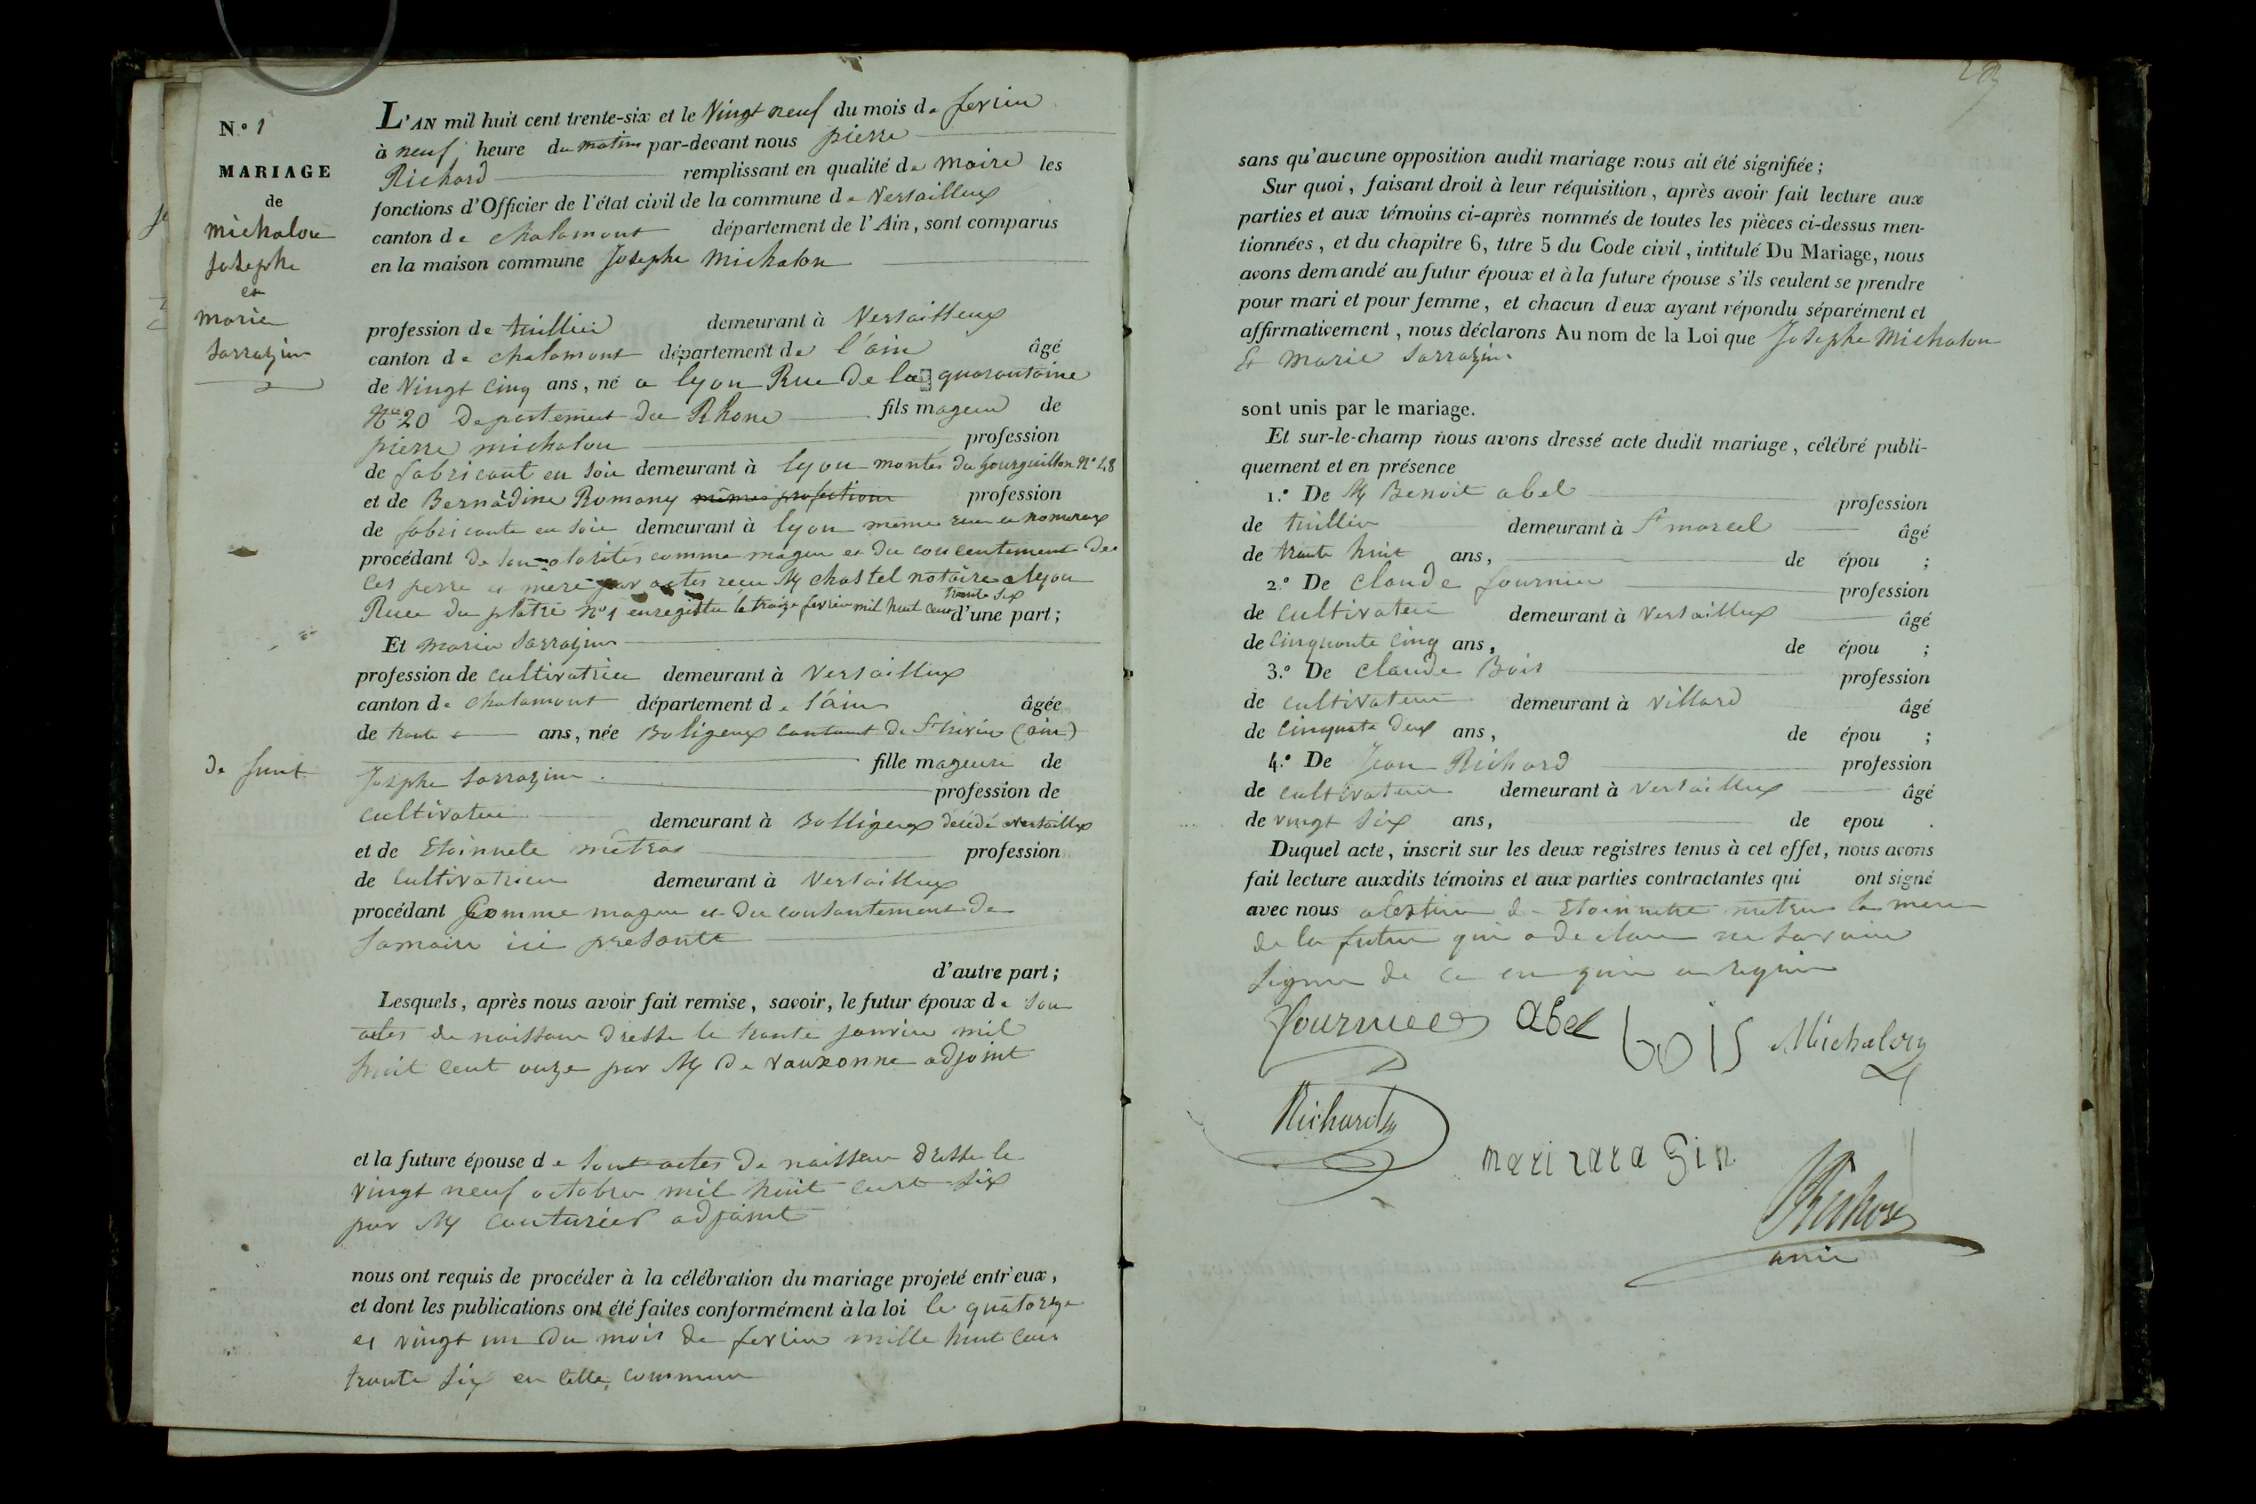 N.º 1
MARIAGE
de
michalon
Josephe
et
marie
sarrazin
L'AN mil huit cent trente-six et le Vingt neuf du mois de fevrier
à neuf heure du matin par-devant nous pierre
Richard remplissant en qualité de maire les
fonctions d'Officier de l'état civil de la commune de Versailleux
canton de chalamont département de l'Ain, sont comparus
en la maison commune Josephe Michalon
profession de tuillier demeurant à Versailleux
canton de chalamont département de l'ain âgé
de Vingt cinq ans, né a lyon Rue De la quarantaine
N° 20 Departement du Rhone fils mageur de
pierre michalon profession
de fabricant en soie demeurant à lyon montés du gourguillon N° 48
et de Bernadine Romany même profection profession
de fabricante en soie demeurant à lyon même rue et nomeraux
procédant de comme mageur et du concentement De
ces perre et mere par actes recu M chastel notaire a lyon
Rue du platre n° 1 enregistre le traize fevrier mil huit cent trante six d'une part;
Et marie sarrazin
profession de cultivatrice demeurant à Versailleux
canton de chalamont département de l'ain âgée
de trante ans, née Boligneux cantont De St trivier (ain)
fille mageure de
de funt Josphe sarrazin profession de
cultivateur demeurant à Bolligneux décédé a Versailleux
et de Etoinnete mêtras profession
de cultivatrice demeurant à Versailleux
procédant Comme mageur et du consantement De
samaire ici presante
d'autre part;
Lesquels, après nous avoir fait remise, savoir, le futur époux de son
actes de naissance dresse le trante janvier mil
huit cent onze par M De vauxonne adjoint
et la future épouse de sont actes De naissance dresse le
vingt neuf octobre mil huit cent six
par M couturier adjoint
nous ont requis de procéder à la célébration du mariage projeté entr'eux,
et dont les publications ont été faites conformément à la loi le quatorze
et vingt un du mois de fevrier mille huit cent
trante six en cette commune
sans qu'aucune opposition audit mariage nous ait été signifiée;
Sur quoi, faisant droit à leur réquisition, après avoir fait lecture aux
parties et aux témoins ci-après nommés de toutes les pièces ci-dessus men-
tionnées, et du chapitre 6, titre 5 du Code civil, intitulé Du Mariage, nous
avons demandé au futur époux et à la future épouse s'ils veulent se prendre
pour mari et pour femme, et chacun d'eux ayant répondu séparément et
affirmativement, nous déclarons Au nom de la Loi que Josephe Michalon
Et marie sarrazin
sont unis par le mariage.
Et sur-le-champ nous avons dressé acte dudit mariage, célébré publi-
quement et en présence
1.º De M Benoit abel profession
de tuillier demeurant à St marcel âgé
de trante huit ans, de épou ;
2.º De Claude fournier profession
de cultivateur demeurant à Versailleux âgé
de cinquante cinq ans, de épou ;
3.º De Claude Bois profession
de cultivateur demeurant à Villard âgé
de cinquate deux ans, de épou ;
4.º De Jean Richard profession
de cultivateur demeurant à Versailleux âgé
de vingt six ans, de epou .
Duquel acte, inscrit sur les deux registres tenus à cet effet, nous avons
fait lecture auxdits témoins et aux parties contractantes qui ont signé
avec nous de Etoinnette la mere
de la future qui a declare ne savoir
signer de ce requis
fournier abel bois Michalon
Richard
mari zaragin
Richard